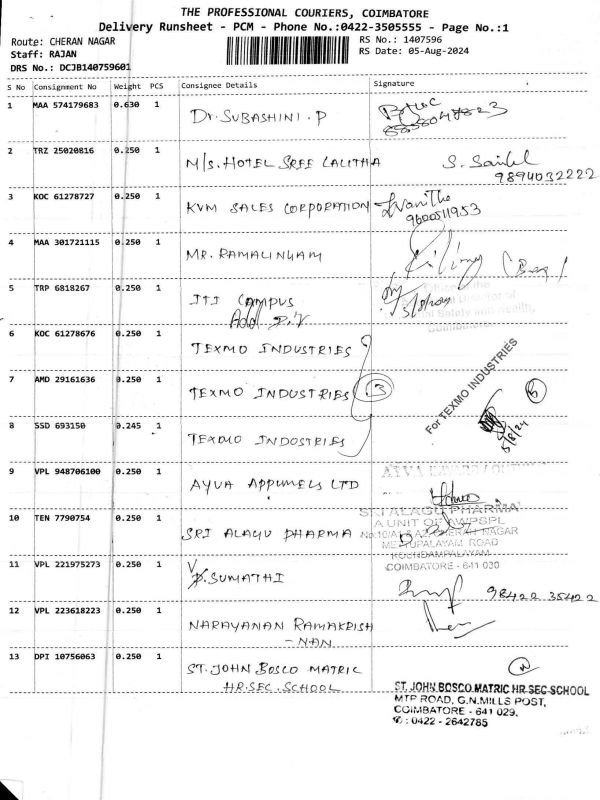 THE PROFESSIONAL COURIERS, COIMBATORE
Delivery Runsheet - PCM - Phone No.:0422-3505555 - Page No.:1
Route: CHERAN NAGAR
RS No.: 1407596
Staff: RAJAN
RS Date: 05-Aug-2024
DRS No.: DCJB140759601
S No Consignment No Weight PCS Consignee Details Signature
1 MAA 574179683 0.630 1 Dr. SUBASHINI. P
2 TRZ 25020816 0.250 1 M/S. HOTEL SREE LALITHA S.
9894032222
3 KOC 61278727 0.250 1 KVM SALES CORPORATION Vanitha
9600511953
4 MAA 301721115 0.250 1 MR. RAMALINGAM
5 TRP 6818267 0.250 1 ITI CAMPUS
Add
Safety and Health,
Coimbatore
6 KOC 61278676 0.250 1 TEXMO INDUSTRIES
7 AMD 29161636 0.250 1 TEXMO INDUSTRIES 3
For TEXMO INDUSTRIES
5/8/24
8 SSD 693150 0.245 1 TEXMO INDUSTRIES
9 VPL 948706100 0.250 1 AYVA APPUMELS LTD
10 TEN 7790754 0.250 1 SRI ALAGU PHARMA
SRI ALAGU PHARMA
A UNIT OF AWPSPL
CHERAN NAGAR
METTUPALAYAM ROAD
KOUNDAMPALAYAM
COIMBATORE - 641 030
11 VPL 221975273 0.250 1 V. SUMATHI
98422 35422
12 VPL 223618223 0.250 1 NARAYANAN RAMAKRISH
- NAN
13 DPI 10756063 0.250 1 ST. JOHN BOSCO MATRIC
HR. SEC. SCHOOL
ST. JOHN BOSCO MATRIC HR SEC SCHOOL
MTP ROAD, G.N.MILLS POST,
COIMBATORE - 641 029.
✆ : 0422 - 2642785